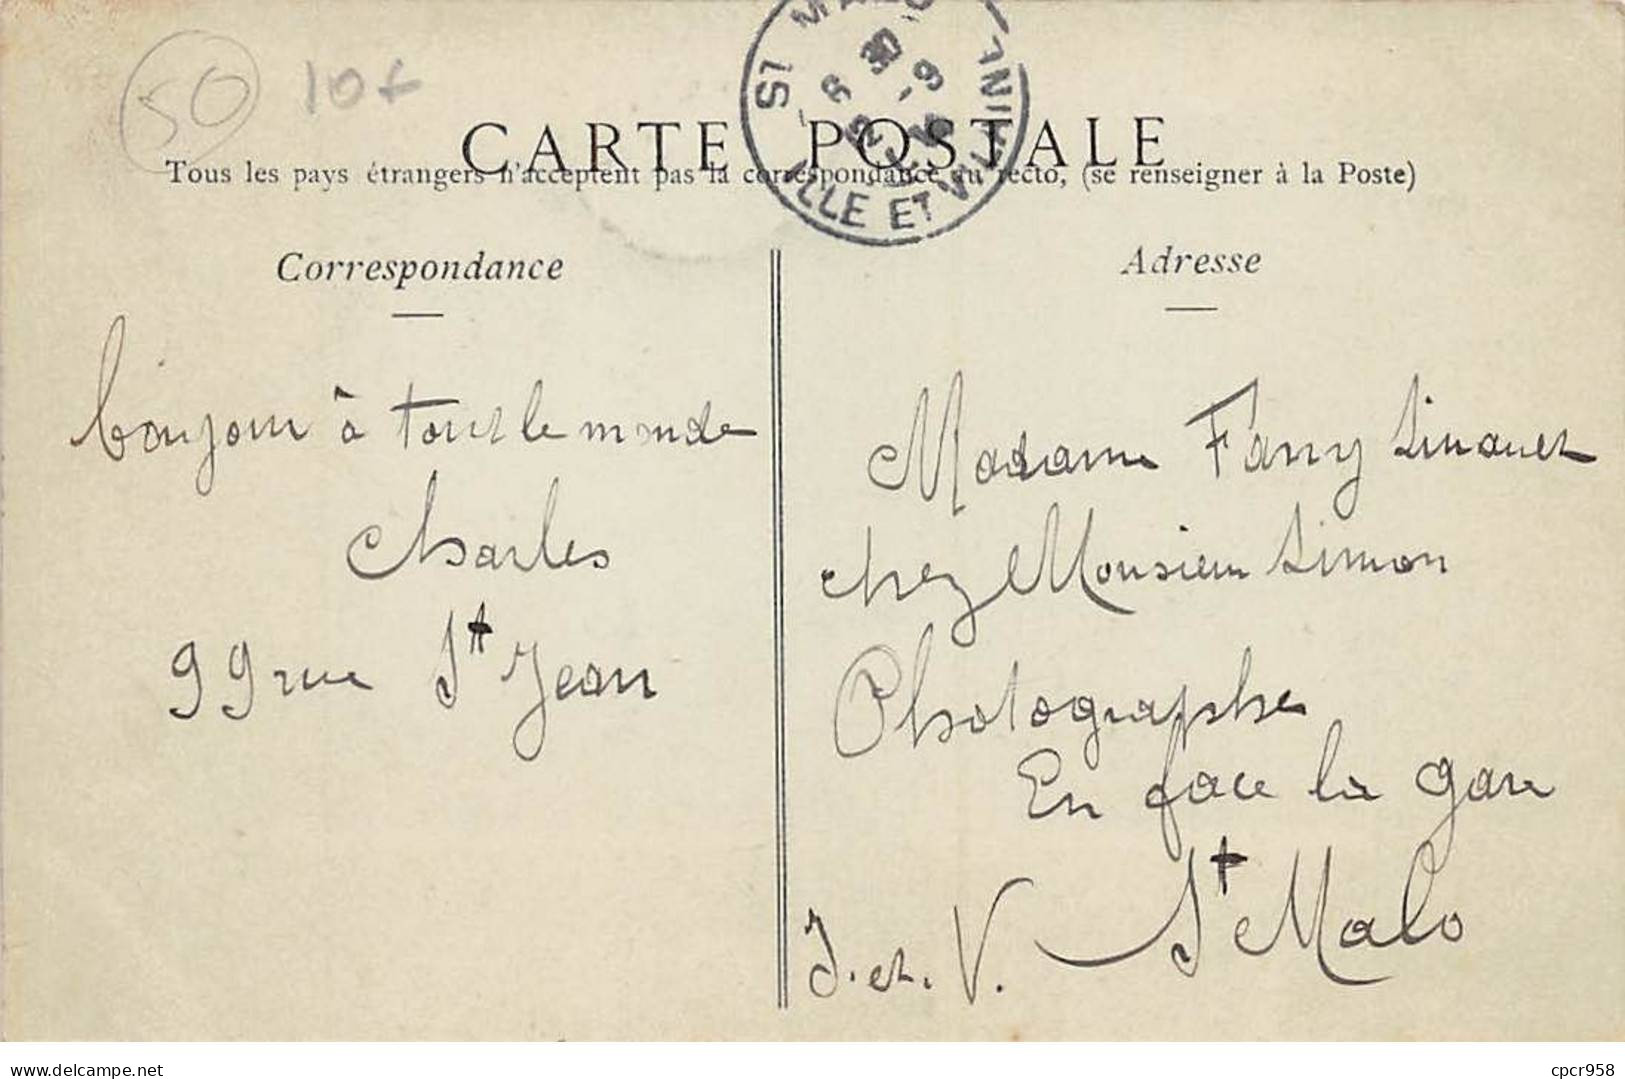 50 10f
ST MALO
ILLE ET VILAINE
CARTE POSTALE
Tous les pays étrangers n'acceptent pas la correspondance au recto, (se renseigner à la Poste)
Correspondance
Adresse
bonjour à tout le monde
Charles
99 rue St Jean
Madame Fanny
chez Monsieur Simon
Photographe
En face la gare
St Malo
I. et. V.
delcampe.net
cpcr958